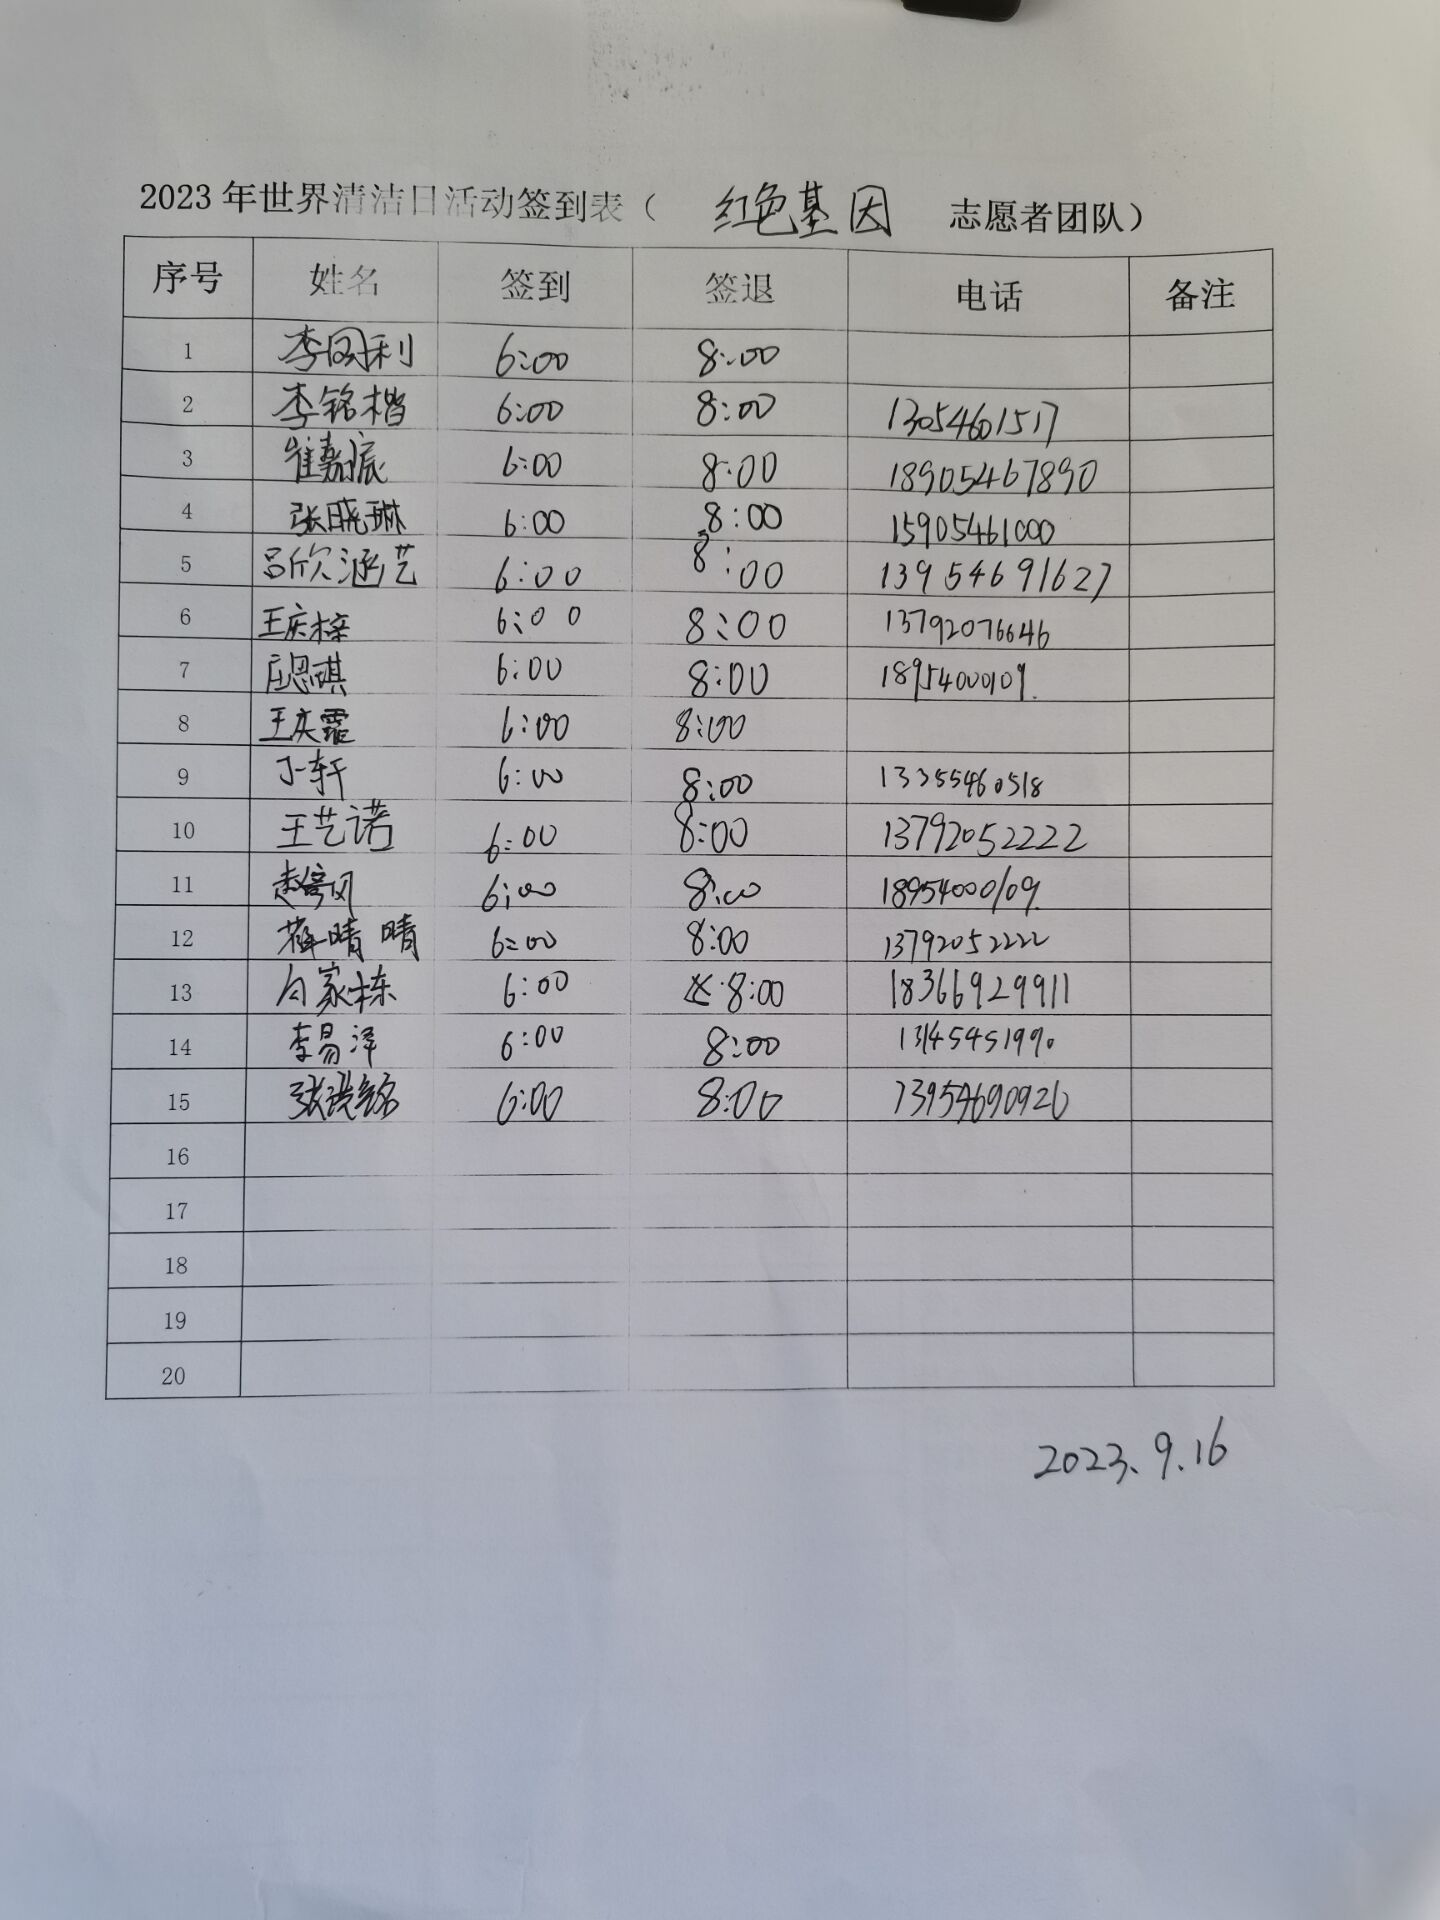 2023年世界清洁日活动签到表（ 红色基因 志愿者团队）
序号 姓名 签到 签退 电话 备注
1 李同利 6:00 8:00
2 李铭楷 6:00 8:00 13054601517
3 崔嘉宸 6:00 8:00 18905467890
4 张晓琳 6:00 8:00 15905461000
5 吕欣涵艺 6:00 8:00 13954691627
6 王庆梓 6:00 8:00 13792076646
7 庄恩琪 6:00 8:00 18954000109
8 王庆霏 6:00 8:00
9 丁一轩 6:00 8:00 13355460518
10 王艺诺 6:00 8:00 13792052222
11 6:00 8:00 18954000109
12 薛晴晴 6:00 8:00 13792052222
13 家栋 6:00 8:00 18366929911
14 李易泽 6:00 8:00
15 6:00 8:00 13954690926
16
17
18
19
20
2023.9.16